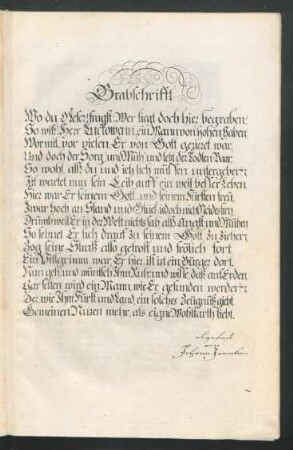 Grabschrifft
Wo du o Leser fragst: Wer liegt doch hier begraben;
So wiß: Herr Lützow ein Mann von hohen Gaben
Wormit vor vielen Er von Gott gezieret war,
Und doch der Sorg und Müh, und seit der Todten Baar,
So wohl, alß du und ich sich müssen untergeben:
Er wartet nun sein Leib auff ein weil besser Leben.
Hier war Er seinem Gott und seinem Fürsten treu,
Zwar hoch an Stand und Glück, jedoch nicht Neides frey
Drumb weil Er in der Welt nichts sah alß Angst und Mühen
So sehnet Er sich drauß zu seinem Gott zu ziehen;
Zog seine Straß also getrost und frölich fort
Ein Pilgrimm war Er hier, ist ein Bürger dort.
Nun geh, und wünsch Ihm Ruh, und wiße daß auf Erden
Gar selten wird ein Mann, wie Er gefunden werden:
Der, wie Ihm Fürst und Land ein solches Zeugnüß giebt
Gemeinen Nutzen mehr, als eigne Wohlfarth liebt.
Johann